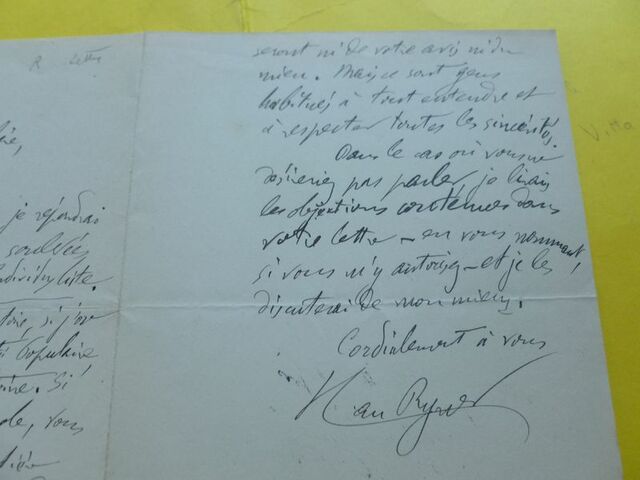 R lettre
je répondrai
soulevées
individualiste.
si j'ose
populaire
Si
vous
seront ni de votre avis ni du
mien. Mais ce sont gens
habitués à tout entendre et
à respecter toutes les sincérités.
Dans le cas où vous ne
désireriez pas parler, je lirais
les objections contenues dans
votre lettre – en vous nommant,
si vous m'y autorisez – et je les
discuterai de mon mieux.
Cordialement à vous
Han Ryner